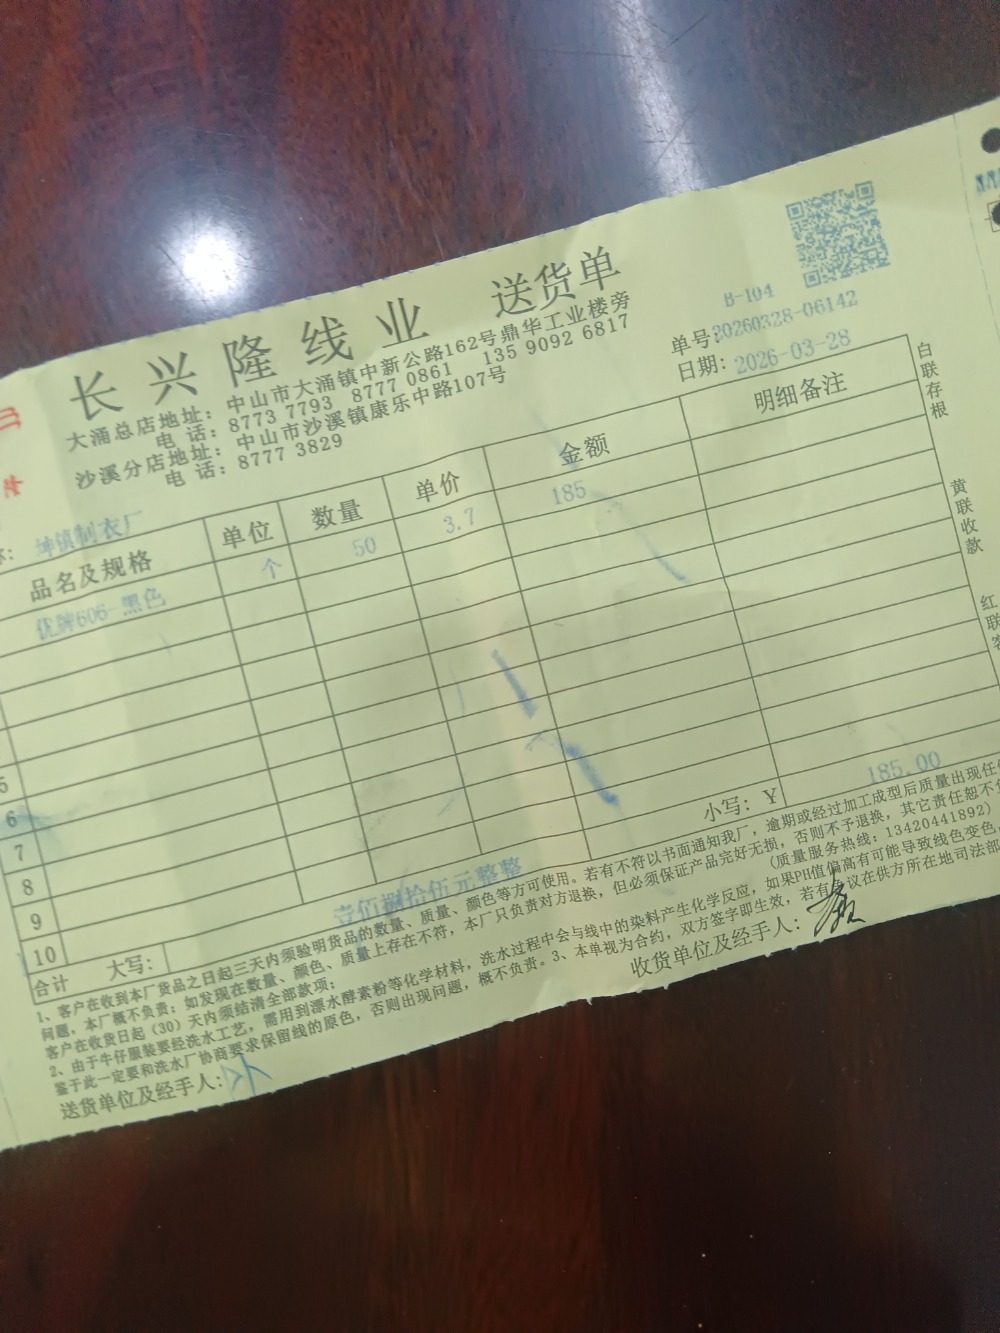 长兴隆线业 送货单
大涌总店地址：中山市大涌镇中新公路162号鼎华工业楼旁
电 话：8773 7793 8777 0861 135 9092 6817
沙溪分店地址：中山市沙溪镇康乐中路107号
电 话：8777 3829
B-104
单号:20260328-06142
日期: 2026-03-28
隆
称: 坤镇制衣厂
品名及规格 单位 数量 单价 金额 明细备注
优牌606-黑色 个 50 3.7 185
5
6
7
8
9
10
合计 大写： 壹佰捌拾伍元整整 小写：Y 185.00
1、客户在收到本厂货品之日起三天内须验明货品的数量、质量、颜色等方可使用。若有不符以书面通知我厂，逾期或经过加工成型后质量出现任何
问题，本厂概不负责；如发现在数量、颜色、质量上存在不符，本厂只负责对方退换，但必须保证产品完好无损，否则不予退换，其它责任恕不
客户在收货日起（30）天内须结清全部款项； （质量服务热线：13420441892）
2、由于牛仔服装要经洗水工艺，需用到漂水酵素粉等化学材料，洗水过程中会与线中的染料产生化学反应，如果PH值偏高有可能导致线色变色，
鉴于此一定要和洗水厂协商要求保留线的原色，否则出现问题，概不负责。3、本单视为合约，双方签字即生效，若有争议在供方所在地司法部
送货单位及经手人： 收货单位及经手人：
白联存根
黄联收款
红联客